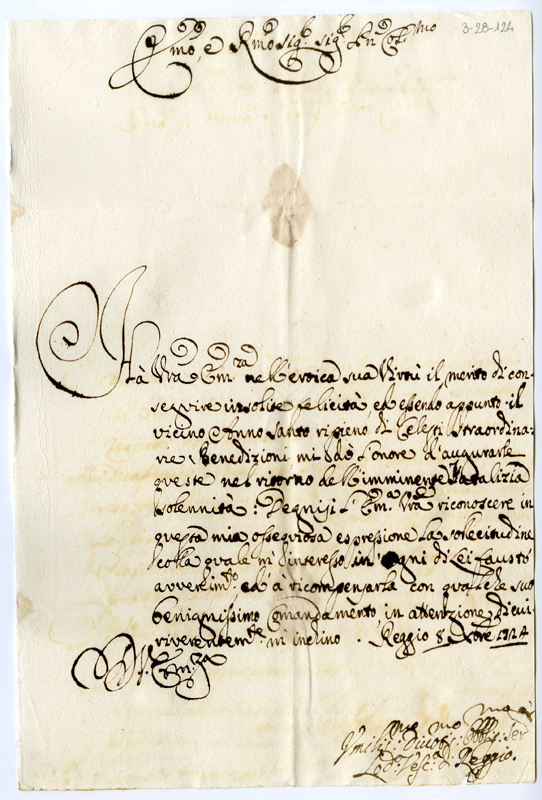 3-28-124
Emõ, e Rmõ Sig.r Sig.r Prñ Col.mo
Hà Vrã Em.za nell'eroica sua Virtù il merito di con-
seguire insolite felicità ed essendo appunto il
vicino Anno Santo ripieno di Celesti Straordina-
rie Benedizioni mi dò l'onore d'augurarle
queste nel ritorno dell'imminente Natalizia
Solennità: Degnisi l'Em.a Vrã riconoscere in
questa mia ossequiosa espressione la sollecitudine
colla quale m'interesso in ogni di Lei fausto
avvenim.to ed a ricompensarla con qualche suo
benignissimo Comandamento in attenzione di cui
riverentem.te m'inclino. Reggio 8 Xbre 1724
D. V. Em.za
Vmiliss.mo Divotiss.mo Obblig. Ser
Lod.o Vesc.o di Reggio.